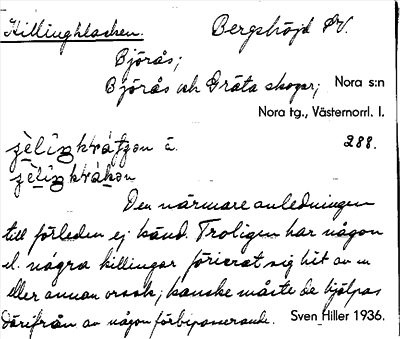 Killingklacken. Bergshöjd SV.
Björås;
Björås och Gräta skogar; Nora s:n
Nora tg., Västernorrl. l.
288.
Den närmare anledningen
till förleden ej känd. Troligen har någon
el. några killingar förirrat sig hit av en
eller annan orsak; kanske måste de hjälpas
därifrån av någon förbipasserande. Sven Hiller 1936.